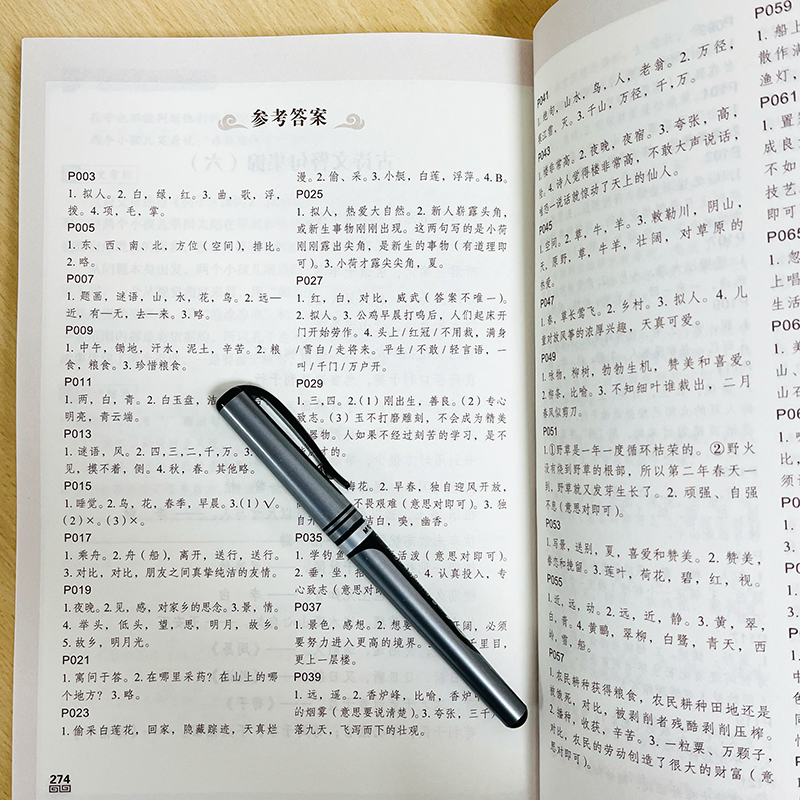 参考答案
P003
1. 拟人。2. 白，绿，红。3. 曲，歌，浮，
拨。4. 项，毛，掌。
P005
1. 东、西、南、北，方位（空间），排比。
2. 略。
P007
1. 题画，谜语，山，水，花，鸟。2. 远—
近，有—无，去—来。3. 略。
P009
1. 中午，锄地，汗水，泥土，辛苦。2. 粮
食，粮食。3. 珍惜粮食。
P011
1. 两，白，青。2. 白玉盘，
明亮，青云端。
P013
1. 谜语，风。2. 四，三，二，千，万。3.
见，摸不着，侧。4. 秋，春。其他略。
P015
1. 睡觉。2. 鸟，花，春季，早晨。3.(1)√。
(2)×。(3)×。
P017
1. 乘舟。2. 舟（船），离开，送行，送行。
3. 对比，对比，朋友之间真挚纯洁的友情。
P019
1. 夜晚。2. 见，感，对家乡的思念。3. 景，情。
4. 举头，低头，望，思，明月，故乡。
5. 故乡，明月光。
P021
1. 寓问于答。2. 在哪里采药？在山上的哪
个地方？ 3. 略。
P023
1. 偷采白莲花，回家，隐藏踪迹，天真烂
274
漫。2. 偷、采。3. 小艇，白莲，浮萍。4. B。
P025
1. 拟人，热爱大自然。2. 新人崭露头角，
或新生事物刚刚出现。这两句写的是小荷
刚刚露出尖角，是新生的事物（有道理即
可）。3. 小荷才露尖尖角，夏。
P027
1. 红，白，对比，威武（答案不唯一）。
2. 拟人。3. 公鸡早晨打鸣后，人们起床开
门开始劳作。4. 头上/红冠/不用裁，满身
/雪白/走将来。平生/不敢/轻言语，一
叫/千门/万户开。
P029
1. 三，四。2.(1) 刚出生，善良。(2) 专心
致志。(3) 玉不打磨雕刻，不会成为精美
器物。人如果不经过刻苦的学习，是不
才的。
梅花。2. 早春，独自迎风开放，
不畏艰难（意思对即可）。3. 独
自开 洁白，唤，幽香。
P035
1. 学钓鱼 活泼（意思对即可）。
2. 垂，坐，招 4. 认真投入，专
心致志（意思对即
P037
1. 景色，感想。2. 想要 开阔，必须
要努力进入更高的境界。3. 千里目，
更上一层楼。
P039
1. 远，遥。2. 香炉峰，比喻，香炉
的烟雾（意思要说清楚）。3. 夸张，三千
落九天，飞泻而下的壮观。
P041
1. 绝句，山水，鸟，人，老翁。2. 万径，
寒江雪，灭。3. 千山，万径，千，万。
P043
1. 楼非常高。2. 夜晚，夜宿。3. 夸张，高，
4. 诗人觉得楼非常高，不敢大声说话，
唯恐一说话就惊动了天上的仙人。
P045
1. 空间。2. 草，牛，羊。3. 敕勒川，阴山，
天，原野，草，牛羊，壮阔，对草原的
热爱。
P047
1. 春，草长莺飞。2. 乡村。3. 拟人。4. 儿
童对放风筝的浓厚兴趣，天真可爱。
P049
1. 咏物，柳树，勃勃生机，赞美和喜爱。
2. 相茶，比喻。3. 不知细叶谁裁出，二月
春风似剪刀。
P051
1. ①野草是一年一度循环枯荣的。②野火
没有烧到野草的根部，所以第二年春天一
到，野草就又发芽生长了。2. 顽强、自强
不息（意思对即可）。
P053
1. 写景，送别，夏，喜爱和赞美。2. 赞美，
眷恋和挽留。3. 莲叶，荷花，碧，红，视。
P055
1. 近，远，动。2. 远，近，静。3. 黄，翠，
白，青。4. 黄鹂，翠柳，白鹭，青天，西
岭，雪，船。
P057
1. 农民耕种获得粮食，农民耕种田地还是
被饿死，对比，被剥削者残酷剥削压榨。
2. 播种，收获，辛苦。3. 一粒粟、万颗子，
对比，农民的劳动创造了很大的财富（意
思对即可）。
P059
1. 船上
散作满
渔灯，
P061
1. 置
成良
不如
技艺
即可
P065
1. 忽
上唱
1. 美
山、
山石